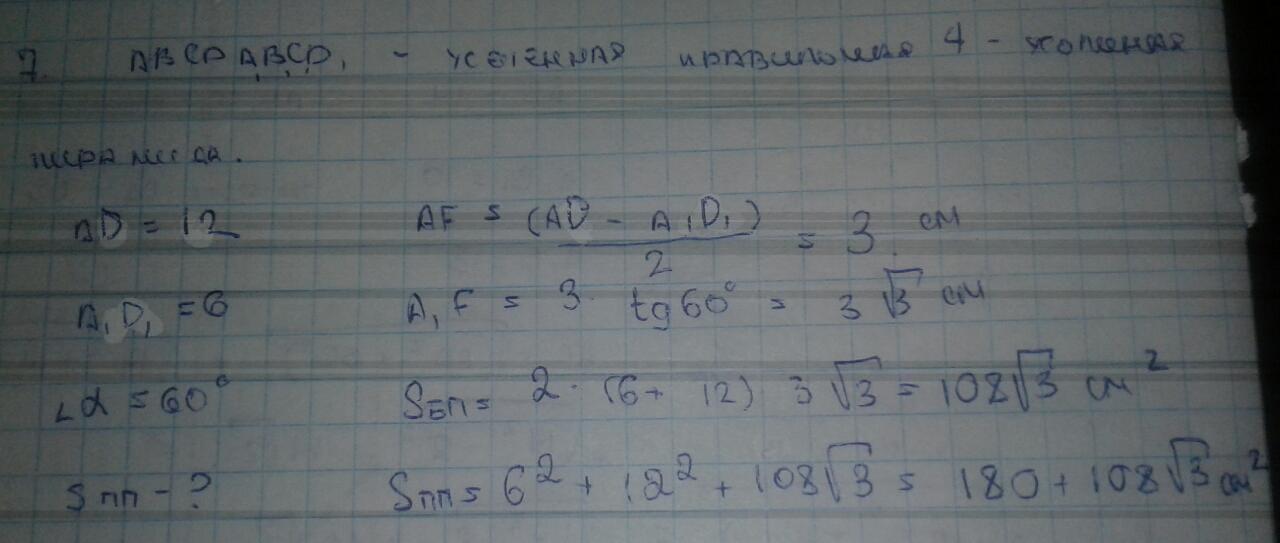 7. ABCDA₁B₁C₁D₁ - усеченная правильная 4 - угольная
пирамида.
AD = 12 AF = (AD - A₁D₁) / 2 = 3 см
A₁D₁ = 6 A₁F = 3 · tg60° = 3√3 см
∠α = 60° Sбп = 2 · (6 + 12) 3√3 = 108√3 см²
Sпп - ? Sпп = 6² + 12² + 108√3 = 180 + 108√3 см²